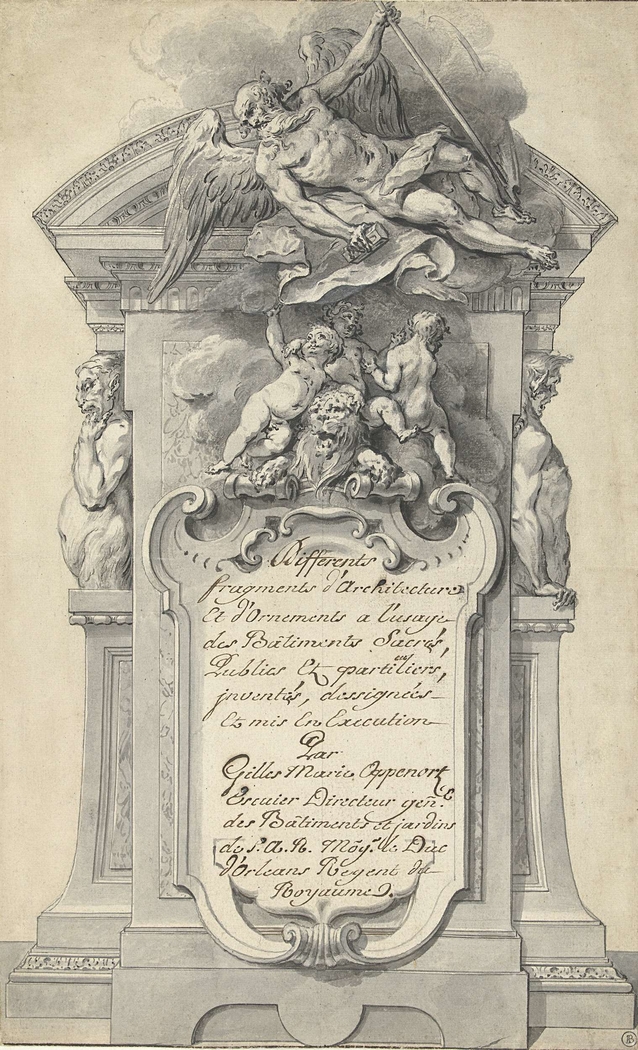 Différents
fragments d'Architecture
Et d'Ornements a l'usage
des Bâtiments Sacrés,
Publics Et partiliers,
cu
jnventés, dessignées
Et mis En Execution
Par
Gilles Marie Oppenort
Escuier Directeur gen.^e
des Bâtiments et jardins
de S. A. R. Mög.^r le Duc
d'Orleans Regent du
Royaume.